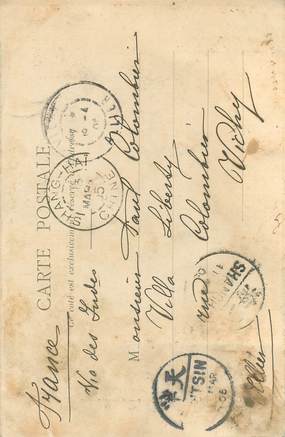 CARTE POSTALE
Ce côté est exclusivement réservé à l'adresse
France
Via des Indes
Monsieur Paul Colombier
Villa Liberty
rue Colombier
Vichy
Allier
SHANG-HAI
MARS
05
CHINE
SHAN
天
TSIN
MAR
05